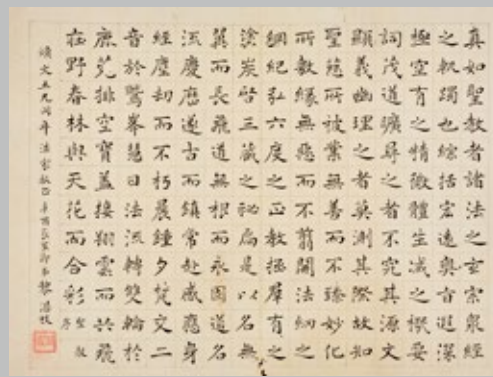 真如聖教者諸法之玄宗衆經
之軌躅也綜括宏遠奧旨遐深
極空有之精微體生滅之機要
詞茂道曠尋之者不究其源文
顯義幽理之者莫測其際故知
聖慈所被業無善而不臻妙化
所敷緣無惡而不翦開法網之
綱紀弘六度之正教拯羣有之
塗炭啓三藏之秘扃是以名無
翼而長飛道無根而永固道名
流慶歷遂古而鎮常赴感應身
經塵劫而不朽晨鐘夕梵交二
音於鷲峯慧日法流轉雙輪於
鹿苑排空寶蓋接翔雲而共飛
莊野春林與天花而合彩 聖教序
文五兄同年法家教正 辛酉長 弟黎湛枝